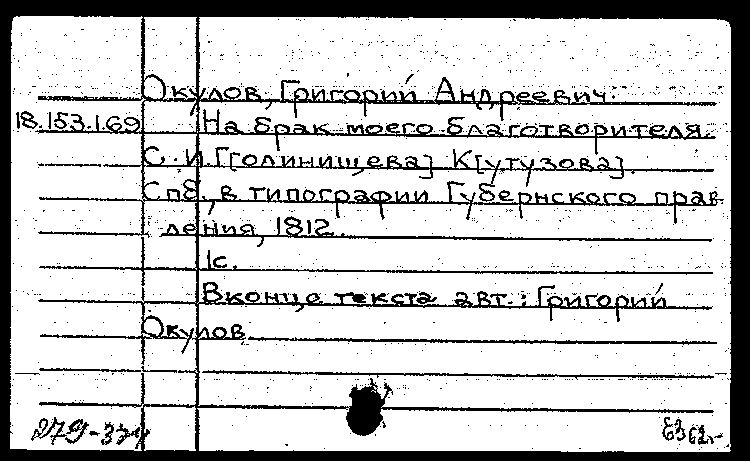 Окулов, Григорий Андреевич.
18.153.1.69 На брак моего благотворителя
С. И. Г[олинищева] К[утузова].
Спб., в типографии Губернского прав-
ления, 1812.
1с.
В конце текста авт.: Григорий
Окулов.